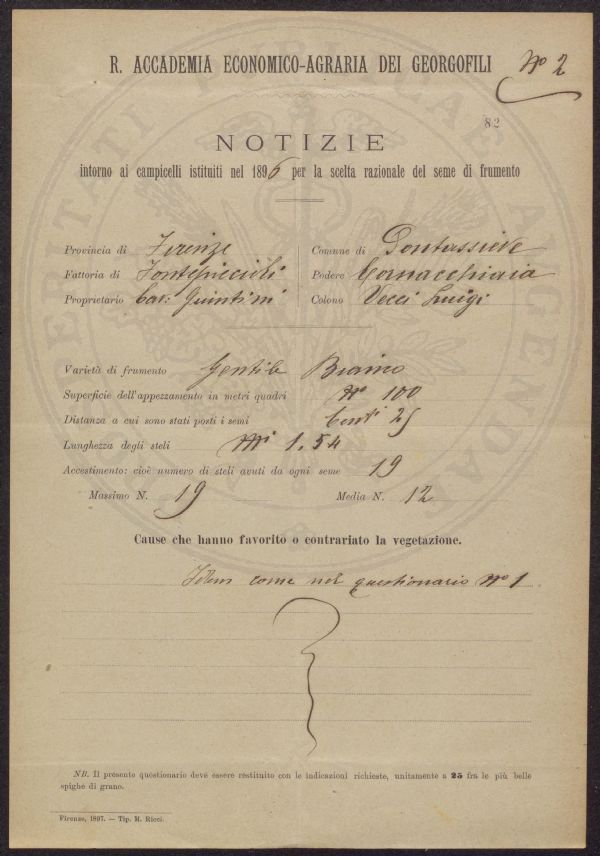 R. ACCADEMIA ECONOMICO-AGRARIA DEI GEORGOFILI Nº 2
82
NOTIZIE
intorno ai campicelli istituiti nel 1896 per la scelta razionale del seme di frumento
Provincia di Firenze Comune di Pontassieve
Fattoria di Podere Cornacchiaia
Proprietario Cav: Quintini Colono Vecci Luigi
Varietà di frumento Gentile Bianco
Superficie dell'appezzamento in metri quadri Nº 100
Distanza a cui sono stati posti i semi Centi 25
Lunghezza degli steli Mi 1.54
Accestimento: cioè numero di steli avuti da ogni seme 19
Massimo N. 19 Media N. 12
Cause che hanno favorito o contrariato la vegetazione.
Idem come nel questionario Nº 1
NB. Il presente questionario deve essere restituito con le indicazioni richieste, unitamente a 25 fra le più belle
spighe di grano.
Firenze, 1897. — Tip. M. Ricci.